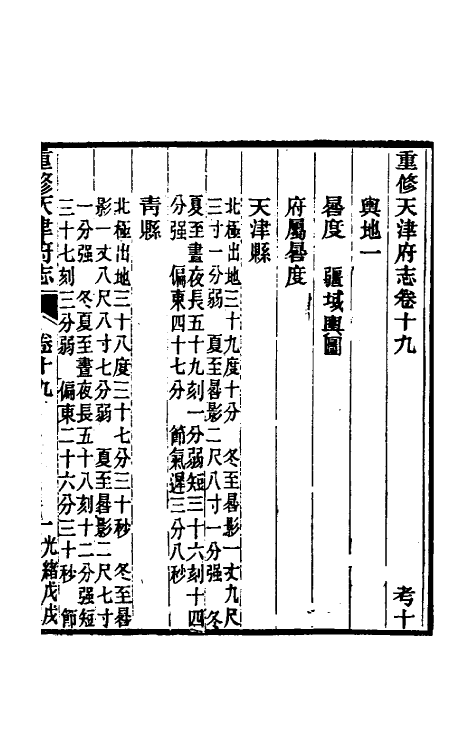 重修天津府志卷十九　考十
輿地一
晷度　疆域輿圖
府屬晷度
天津縣
北極出地三十九度十分　冬至晷影一丈九尺
三寸一分弱　夏至晷影二尺八寸一分强　冬
夏至晝夜長五十九刻一分弱短三十六刻十四
分强　偏東四十七分　節氣遲三分八秒
青縣
北極出地三十八度三十七分三十秒　冬至晷
影一丈八尺八寸七分弱　夏至晷影二尺七寸
一分强　冬夏至晝夜長五十八刻十二分强短
三十七刻三分弱　偏東二十六分三十秒　節
重修天津府志　卷十九　一　光緒戊戌